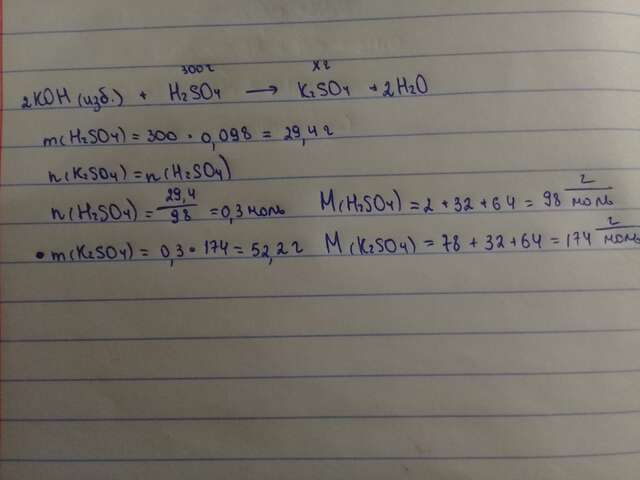 300г хг
2KOH (изб.) + H₂SO₄ → K₂SO₄ + 2H₂O
m(H₂SO₄) = 300 · 0,098 = 29,4 г
n(K₂SO₄) = n(H₂SO₄)
n(H₂SO₄) = 29,4/98 = 0,3 моль M(H₂SO₄) = 2 + 32 + 64 = 98 г/моль
• m(K₂SO₄) = 0,3 · 174 = 52,2 г M(K₂SO₄) = 78 + 32 + 64 = 174 г/моль